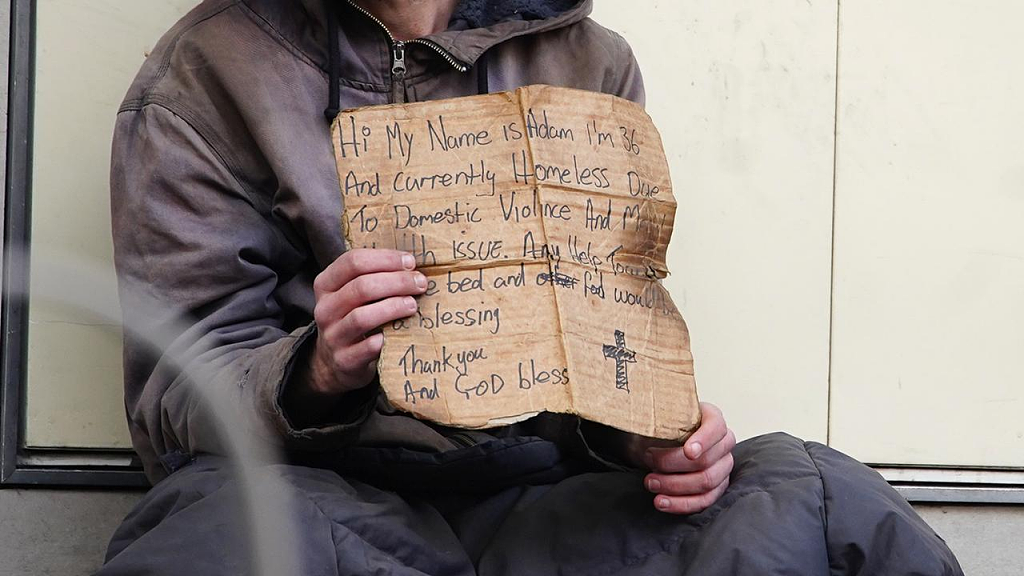 Hi My Name is Adam I'm 36
And Currently Homeless Due
To Domestic Violence And
ISSUE. Any Help
bed and would
a blessing
Thank you
And GOD bless